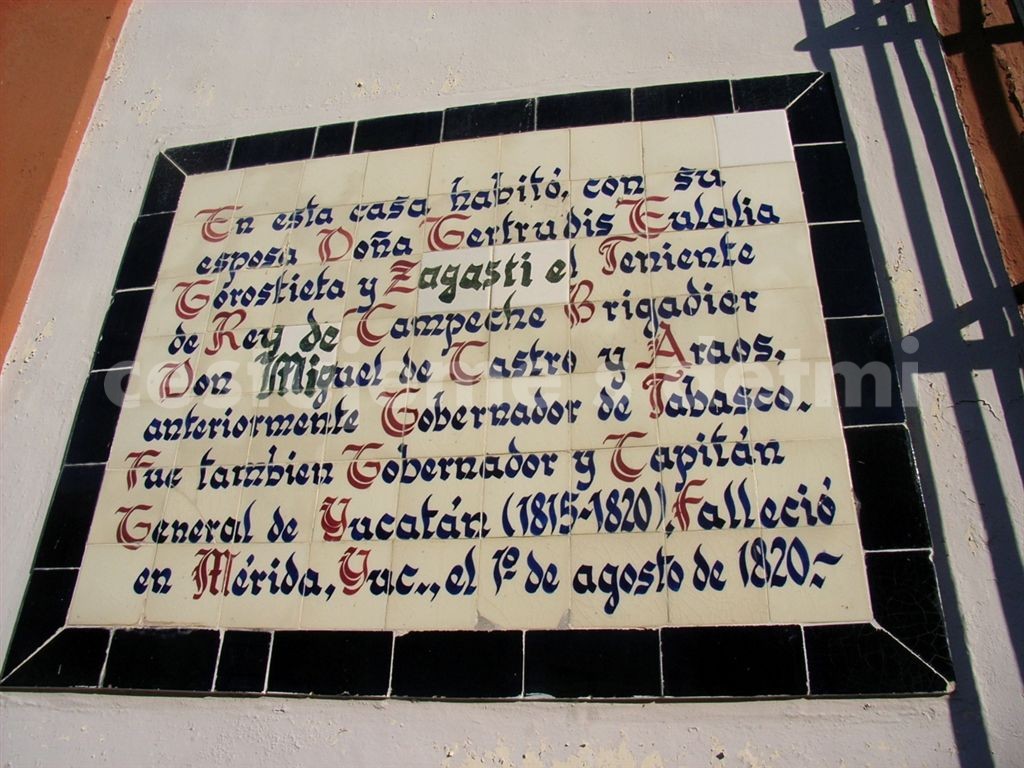 En esta casa habitó, con su
esposa Doña Gertrudis Eulalia
Gorostieta y Zagasti el Teniente
de Rey de Campeche Brigadier
Don Miguel de Castro y Araos,
anteriormente Gobernador de Tabasco.-
Fue tambien Gobernador y Capitán
General de Yucatán (1815-1820). Falleció
en Mérida, Yuc., el 1º de agosto de 1820.-